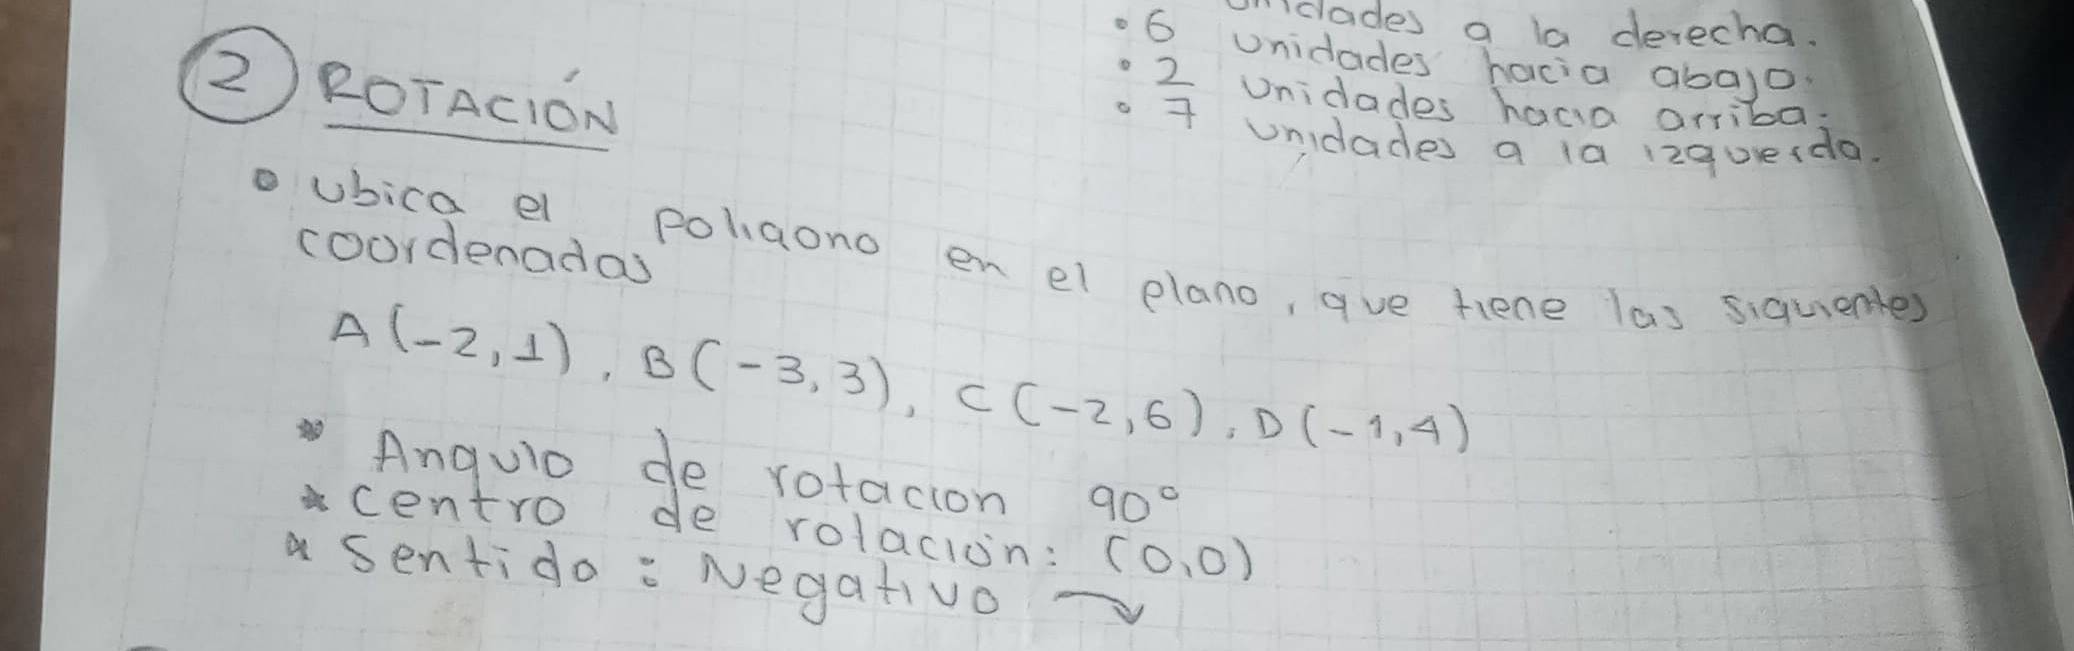 unidades a la derecha.
• 6 unidades hacia abajo.
• 2 unidades hacia arriba.
• 7 unidades a la izquierda.
2 ROTACIÓN
• Ubica el poligono en el plano, que tiene las siguientes
coordenadas
A(-2,1), B(-3,3), C(-2,6), D(-1,4)
* Angulo de rotacion 90°
* centro de rotación: (0,0)
* Sentido: Negativo